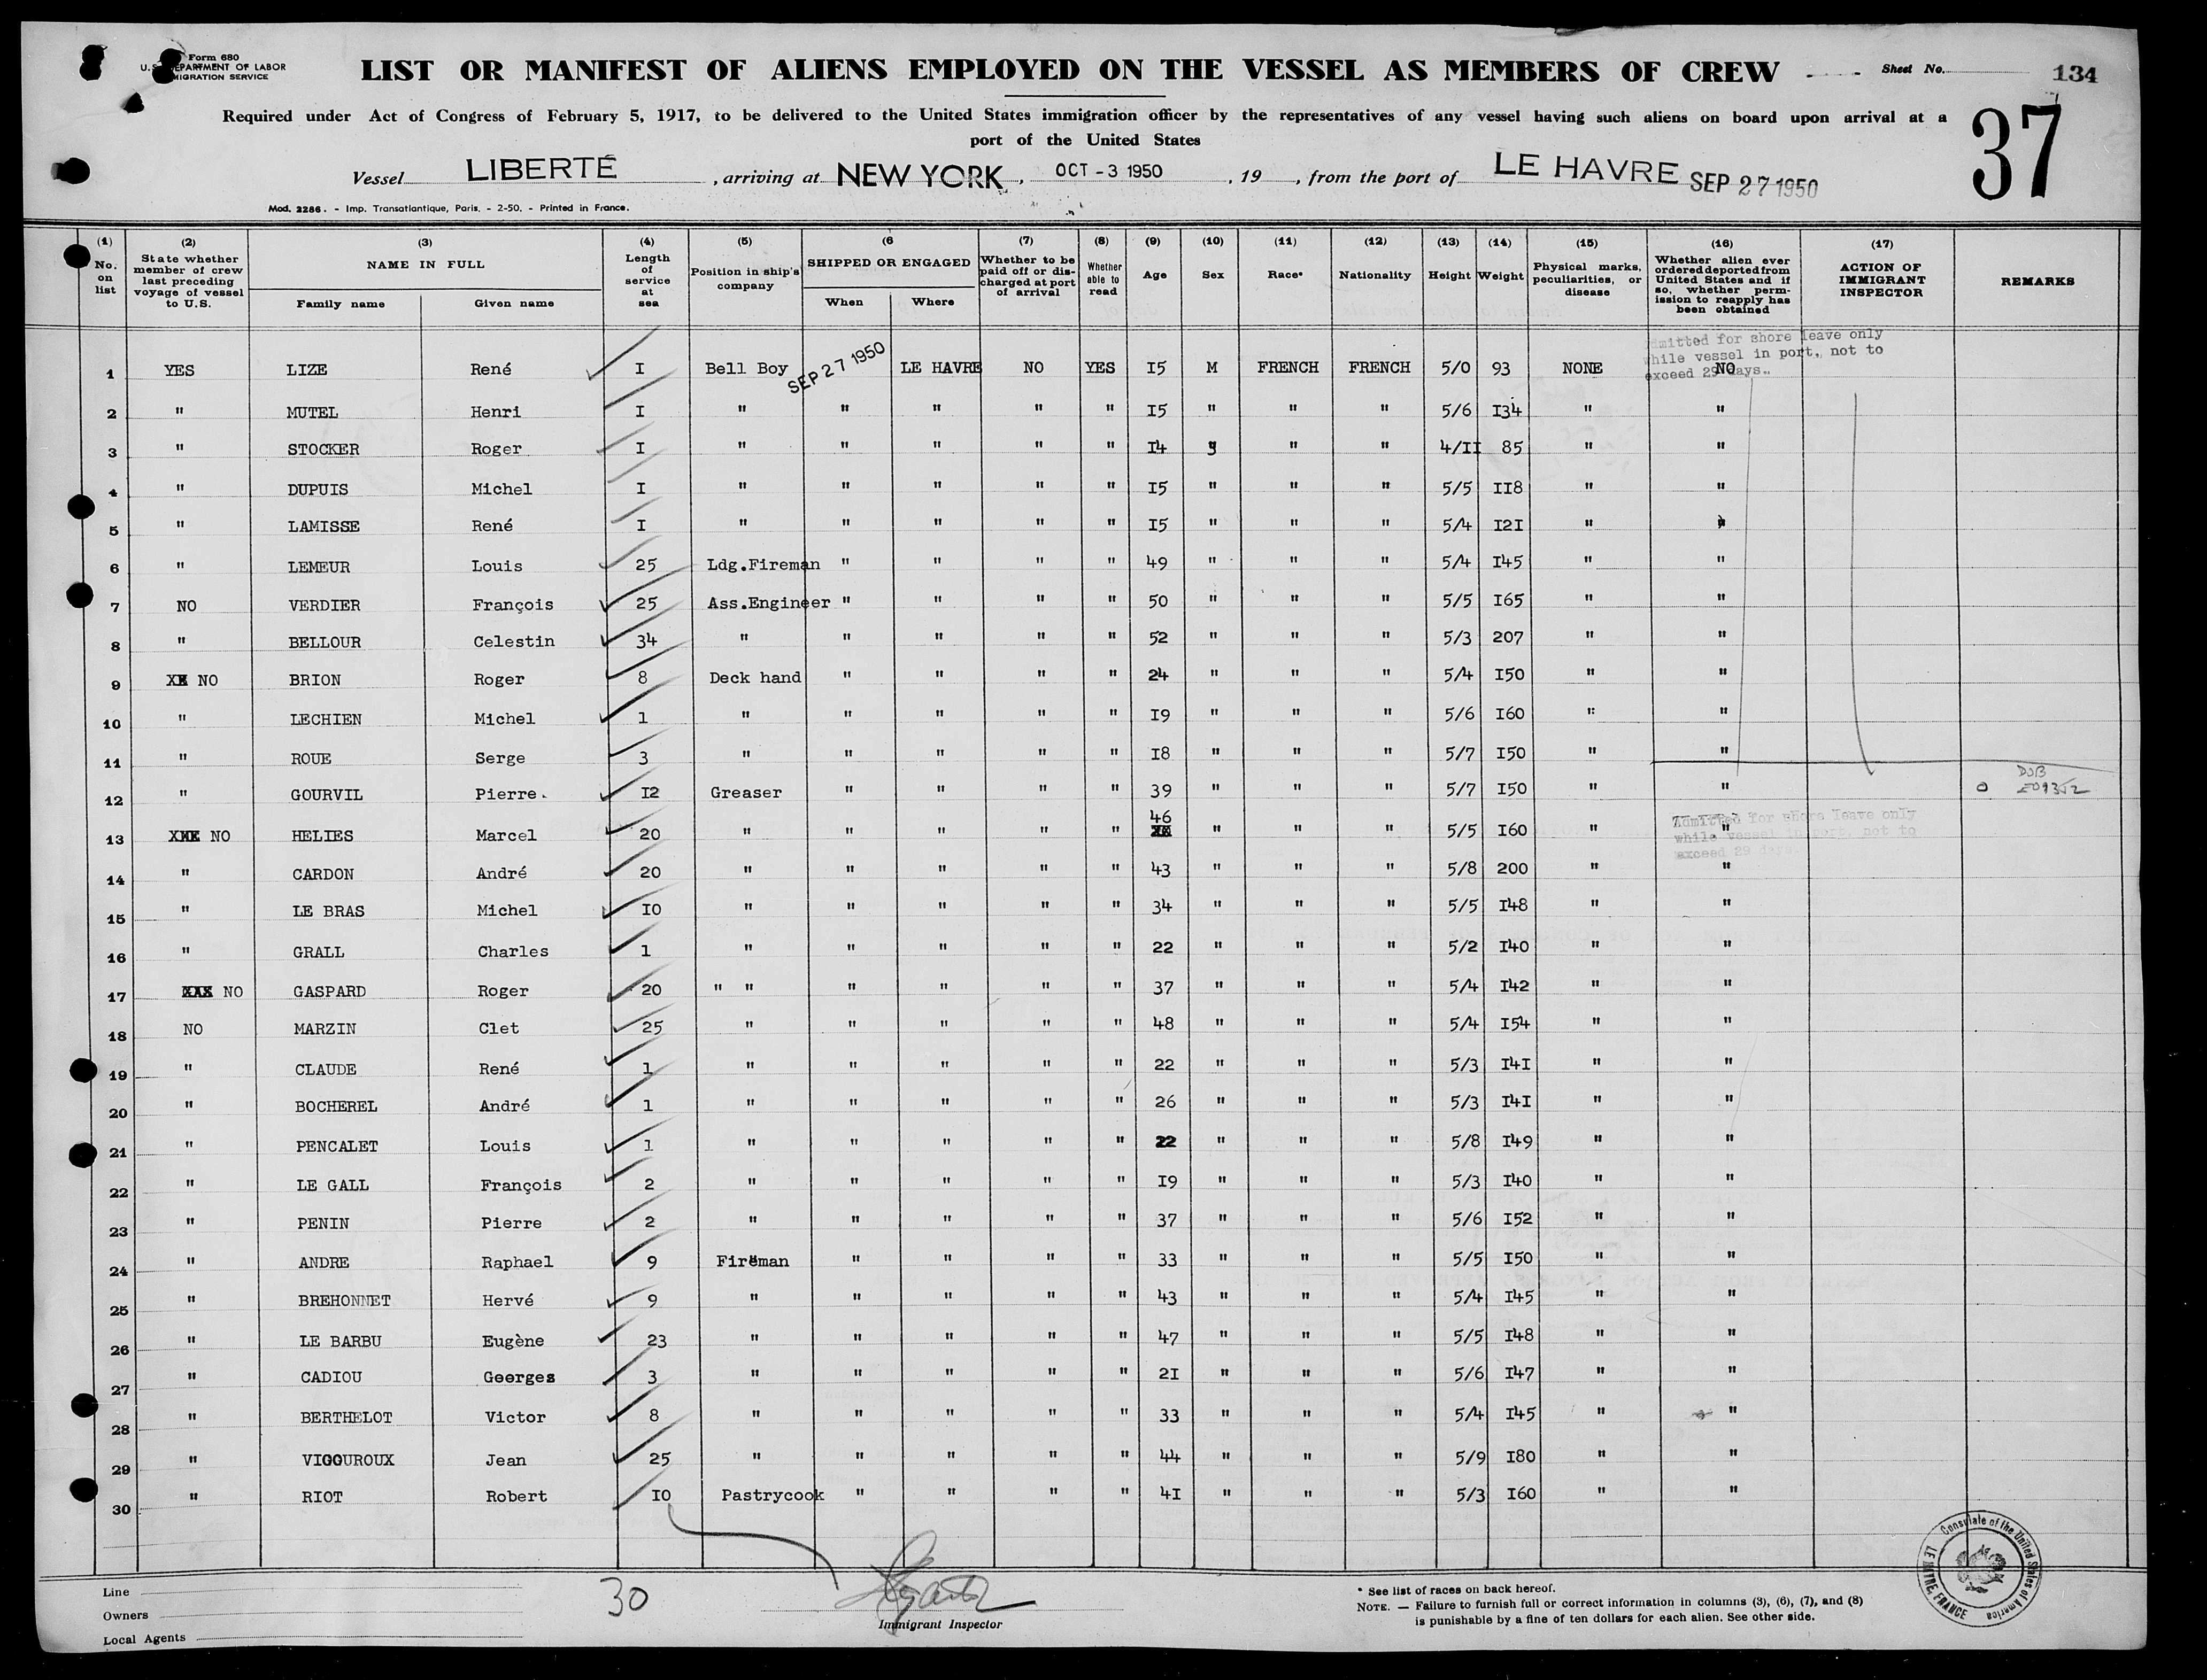 Form 680
U.S. DEPARTMENT OF LABOR
IMMIGRATION SERVICE
LIST OR MANIFEST OF ALIENS EMPLOYED ON THE VESSEL AS MEMBERS OF CREW
Sheet No. 134
37
Required under Act of Congress of February 5, 1917, to be delivered to the United States immigration officer by the representatives of any vessel having such aliens on board upon arrival at a
port of the United States
Vessel LIBERTÉ , arriving at NEW YORK , OCT - 3 1950 , 19 , from the port of LE HAVRE SEP 27 1950
Mod. 2286. - Imp. Transatlantique, Paris. - 2-50. - Printed in France.
(1) No. on list
(2) State whether member of crew last preceding voyage of vessel to U.S.
(3) NAME IN FULL Family name Given name
(4) Length of service at sea
(5) Position in ship's company
(6 SHIPPED OR ENGAGED When Where
(7) Whether to be paid off or discharged at port of arrival
(8) Whether able to read
(9) Age
(10) Sex
(11) Race*
(12) Nationality
(13) Height
(14) Weight
(15) Physical marks, peculiarities, or disease
(16) Whether alien ever ordered deported from United States and if so, whether permission to reapply has been obtained
(17) ACTION OF IMMIGRANT INSPECTOR
REMARKS
Admitted for shore leave only
while vessel in port, not to
exceed 29 days.
1 YES LIZE René I Bell Boy SEP 27 1950 LE HAVRE NO YES I5 M FRENCH FRENCH 5/0 93 NONE NO
2 " MUTEL Henri I " " " " " I5 " " " 5/6 I34 " "
3 " STOCKER Roger I " " " " " I4 " " " 4/II 85 " "
4 " DUPUIS Michel I " " " " " I5 " " " 5/5 II8 " "
5 " LAMISSE René I " " " " " I5 " " " 5/4 I2I " "
6 " LEMEUR Louis 25 Ldg.Fireman " " " " 49 " " " 5/4 I45 " "
7 NO VERDIER François 25 Ass.Engineer " " " " 50 " " " 5/5 I65 " "
8 " BELLOUR Celestin 34 " " " " " 52 " " " 5/3 207 " "
9 NO BRION Roger 8 Deck hand " " " " 24 " " " 5/4 I50 " "
10 " LECHIEN Michel 1 " " " " " I9 " " " 5/6 I60 " "
11 " ROUE Serge 3 " " " " " I8 " " " 5/7 I50 " "
12 " GOURVIL Pierre. I2 Greaser " " " " 39 " " " 5/7 I50 " "
Admitted for shore leave only
while vessel in port, not to
exceed 29 days
13 XXX NO HELIES Marcel 20 " " " " " 46 " " " 5/5 I60 " "
14 " CARDON André 20 " " " " " 43 " " " 5/8 200 " "
15 " LE BRAS Michel I0 " " " " " 34 " " " 5/5 I48 " "
16 " GRALL Charles 1 " " " " " 22 " " " 5/2 I40 " "
17 XXX NO GASPARD Roger 20 " " " " " " 37 " " " 5/4 I42 " "
18 NO MARZIN Clet 25 " " " " " 48 " " " 5/4 I54 " "
19 " CLAUDE René 1 " " " " " 22 " " " 5/3 I4I " "
20 " BOCHEREL André 1 " " " " " 26 " " " 5/3 I4I " "
21 " PENCALET Louis 1 " " " " " 22 " " " 5/8 I49 " "
22 " LE GALL François 2 " " " " " I9 " " " 5/3 I40 " "
23 " PENIN Pierre 2 " " " " " 37 " " " 5/6 I52 " "
24 " ANDRE Raphael 9 Fireman " " " " 33 " " " 5/5 I50 " "
25 " BREHONNET Hervé 9 " " " " " 43 " " " 5/4 I45 " "
26 " LE BARBU Eugène 23 " " " " " 47 " " " 5/5 I48 " "
27 " CADIOU Georges 3 " " " " " 2I " " " 5/6 I47 " "
28 " BERTHELOT Victor 8 " " " " " 33 " " " 5/4 I45 " "
29 " VIGOUROUX Jean 25 " " " " " 44 " " " 5/9 I80 " "
30 " RIOT Robert I0 Pastrycook " " " " 4I " " " 5/3 I60 " "
Line
Owners
Local Agents
30
Immigrant Inspector
* See list of races on back hereof.
NOTE. — Failure to furnish full or correct information in columns (3), (6), (7), and (8)
is punishable by a fine of ten dollars for each alien. See other side.
Consulate of the United States of America
LE HAVRE, FRANCE